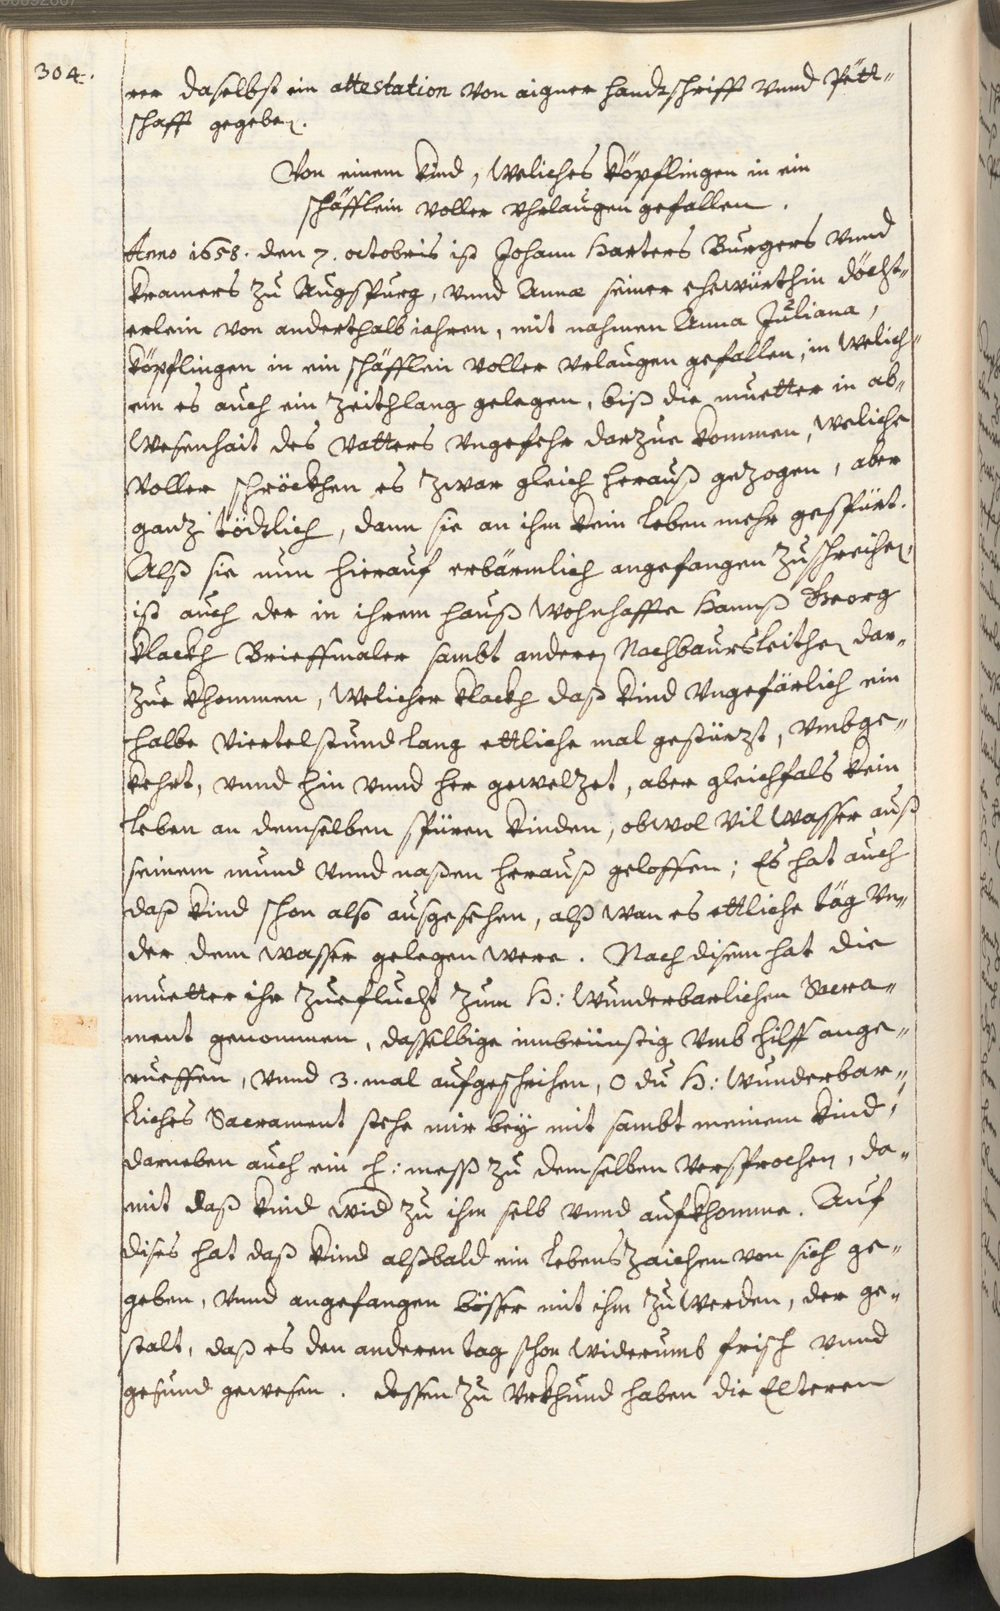 304.
rer daselbst ein attestation von aigner handtschrifft vnnd Pett-
schafft gegeben.
Von einem kind, weliches köpflingen in ein
schäfflein voller vhrlaugen gefallen.
Anno 1658. den 7. octobris ist Johann Harters Burgers vnnd
kramers zu Augspurg, vnnd Annæ seiner ehewürthin döcht-
erlein von anderthalb iahren, mit nahmen Anna Juliana,
köpflingen in ein schäfflein voller vrlaugen gefallen, in welich-
em es auch ein zeithlang gelegen, biß die muetter in ab-
wesenhait des vatters vngefehr darzue kommen, weliche
voller schröckhen es zwar gleich herauß gezogen, aber
ganz tödtlich, dann sie an ihm kein leben mehr gespürt.
Alß sie nun hierauf erbärmlich angefangen zuschreihen,
ist auch der in ihrem hauß wohnhaffte Hannß Georg
klackh Brieffmaler sambt anderen Nachbaursleithen dar-
zue khommen, welicher klackh daß kind vngefärlich ein
halbe viertelstund lang ettliche mal gestürzt, vmbge-
kehrt, vnnd hin vnnd her gewelzet, aber gleichfals kein
leben an demselben spüren kinden, obwol vil wasser auß
seinem mund vnnd naßen herauß geloffen; Es hat auch
daß kind schon also ausgesehen, alß wan es ettliche täg vn-
der dem wasser gelegen were. Nach disem hat die
muetter ihr zueflucht zum H: wunderbarlichen Sacra-
ment genommen, dasselbige innbrünstig vmb hilff ange-
rueffen, vnnd 3. mal aufgeschrihen, O du H: wunderbar-
liches Sacrament stehe mir bey mit sambt meinem kind,
darneben auch ein h: meß zu demselben versprochen, da-
mit daß kind wid zu ihm selb vnnd aufkhomme. Auf
dises hat daß kind alßbald ein lebenszaichen von sich ge-
geben, vnnd angefangen bösser mit ihm zu werden, der ge-
stalt, daß es den anderen tag schon widerumb frisch vnnd
gesund gewesen. dessen zu vrkhund haben die Elteren